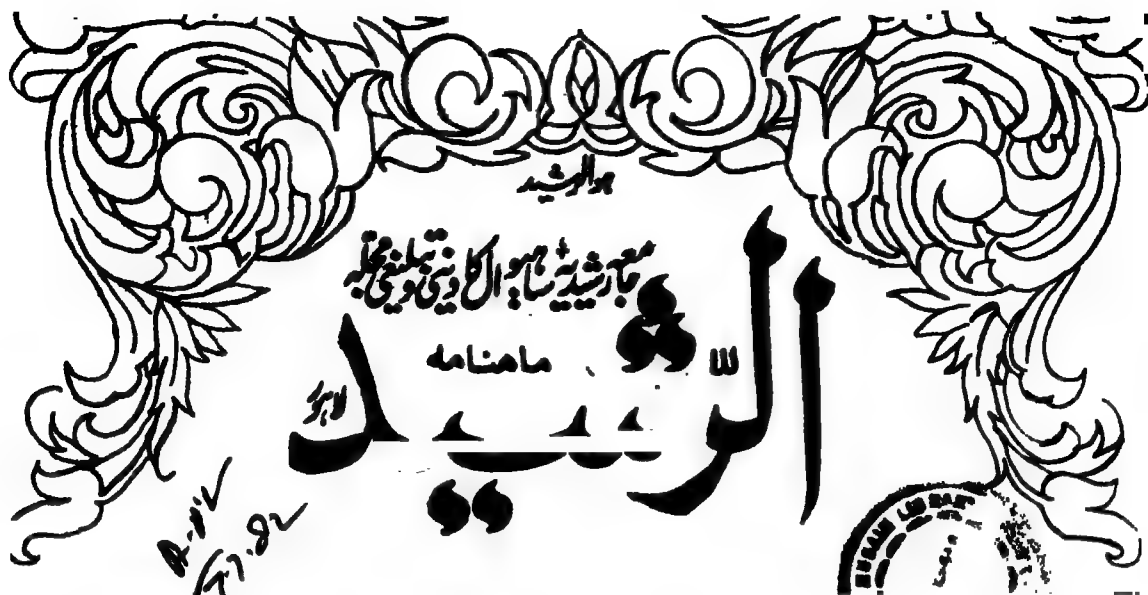 ہوالرشید
جامعہ رشیدیہ ساہیوال کا دینی و تبلیغی مجلہ
ماہنامہ
الرّشید
لاہور